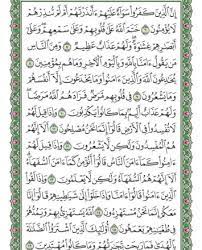 إِنَّ الَّذِينَ كَفَرُوا سَوَاءٌ عَلَيْهِمْ ءَأَنذَرْتَهُمْ أَمْ لَمْ تُنذِرْهُمْ
لَا يُؤْمِنُونَ ۝٦ خَتَمَ اللَّهُ عَلَىٰ قُلُوبِهِمْ وَعَلَىٰ سَمْعِهِمْ وَعَلَىٰ
أَبْصَٰرِهِمْ غِشَٰوَةٌ وَلَهُمْ عَذَابٌ عَظِيمٌ ۝٧ وَمِنَ النَّاسِ
مَن يَقُولُ ءَامَنَّا بِاللَّهِ وَبِالْيَوْمِ الْءَاخِرِ وَمَا هُم بِمُؤْمِنِينَ ۝٨
يُخَٰدِعُونَ اللَّهَ وَالَّذِينَ ءَامَنُوا وَمَا يَخْدَعُونَ إِلَّا أَنفُسَهُمْ
وَمَا يَشْعُرُونَ ۝٩ فِي قُلُوبِهِم مَّرَضٌ فَزَادَهُمُ اللَّهُ مَرَضًا
وَلَهُمْ عَذَابٌ أَلِيمٌ بِمَا كَانُوا يَكْذِبُونَ ۝١٠ وَإِذَا قِيلَ لَهُمْ
لَا تُفْسِدُوا فِي الْأَرْضِ قَالُوا إِنَّمَا نَحْنُ مُصْلِحُونَ ۝١١ أَلَا إِنَّهُمْ
هُمُ الْمُفْسِدُونَ وَلَٰكِن لَّا يَشْعُرُونَ ۝١٢ وَإِذَا قِيلَ لَهُمْ
ءَامِنُوا كَمَا ءَامَنَ النَّاسُ قَالُوا أَنُؤْمِنُ كَمَا ءَامَنَ السُّفَهَاءُ
أَلَا إِنَّهُمْ هُمُ السُّفَهَاءُ وَلَٰكِن لَّا يَعْلَمُونَ ۝١٣ وَإِذَا لَقُوا
الَّذِينَ ءَامَنُوا قَالُوا ءَامَنَّا وَإِذَا خَلَوْا إِلَىٰ شَيَٰطِينِهِمْ قَالُوا
إِنَّا مَعَكُمْ إِنَّمَا نَحْنُ مُسْتَهْزِءُونَ ۝١٤ اللَّهُ يَسْتَهْزِئُ بِهِمْ وَيَمُدُّهُمْ
فِي طُغْيَٰنِهِمْ يَعْمَهُونَ ۝١٥ أُولَٰئِكَ الَّذِينَ اشْتَرَوُا
الضَّلَٰلَةَ بِالْهُدَىٰ فَمَا رَبِحَت تِّجَٰرَتُهُمْ وَمَا كَانُوا مُهْتَدِينَ ۝١٦